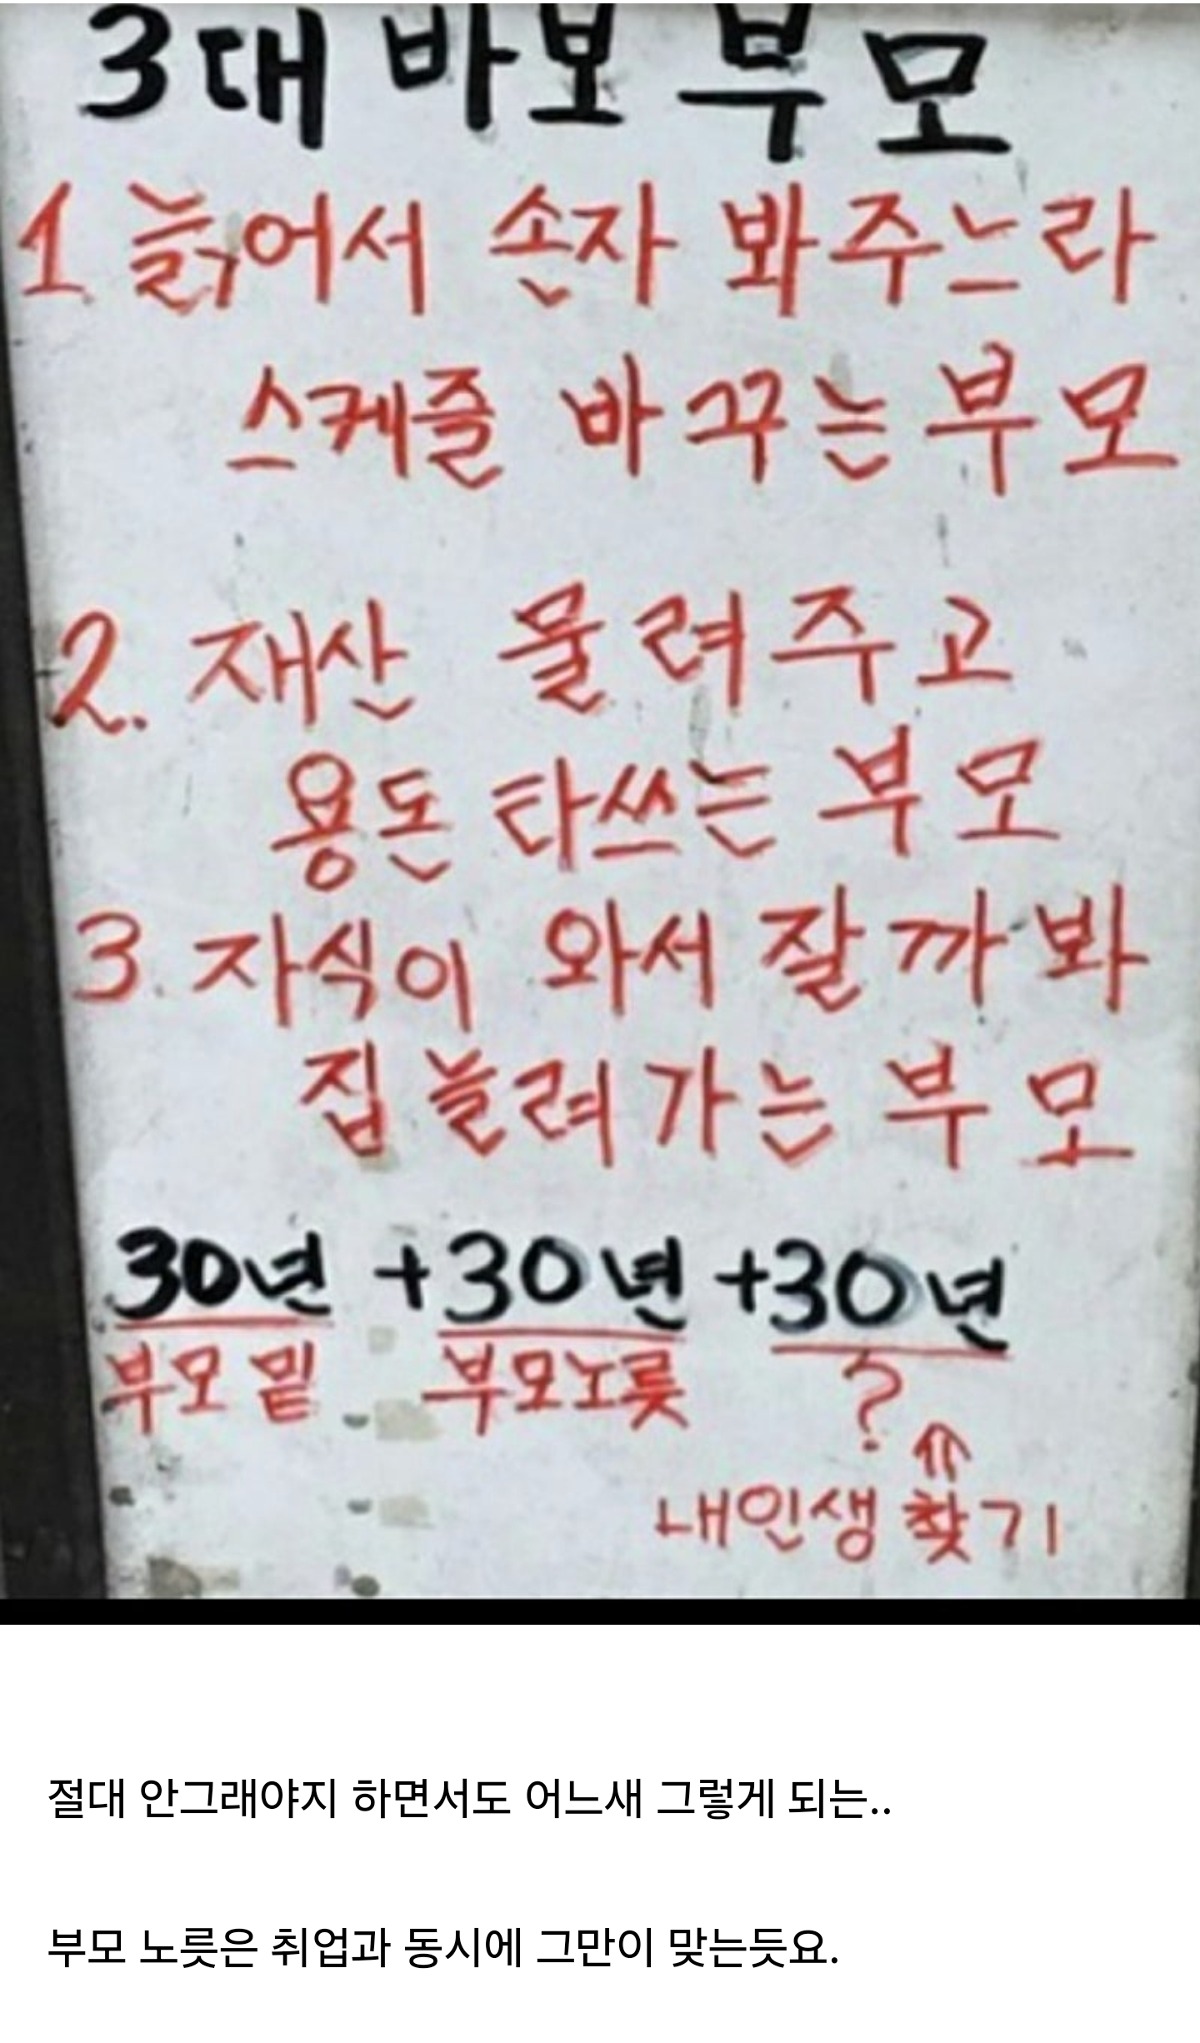 3대 바보 부모
1 늙어서 손자 봐주느라
스케줄 바꾸는 부모
2. 재산 물려주고
용돈 타쓰는 부모
3. 자식이 와서 잘까봐
집 늘려가는 부모
30년 +30년 +30년
부모 밑 부모노릇 ?
⇑
내인생 찾기
절대 안그래야지 하면서도 어느새 그렇게 되는..
부모 노릇은 취업과 동시에 그만이 맞는듯요.